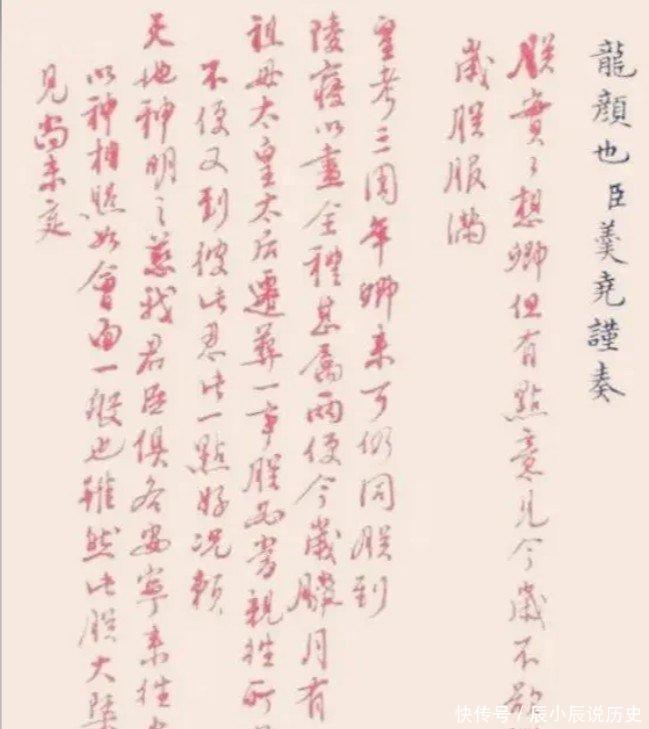 龍顔也臣羹堯謹奏
朕實々想卿但有點意見今歲不
歲朕服滿
皇考三周年卿来可仍同朕到
陵寢以盡全禮甚為兩便今歲臘月有
祖母太皇太后遷葬一事朕必當親往所
不便又到彼此忍此一點好况賴
天地神明之慈我君臣俱各安寧来往
以神相照如會面一般也雖然此朕大
見尚未定
快传号/辰小辰说历史